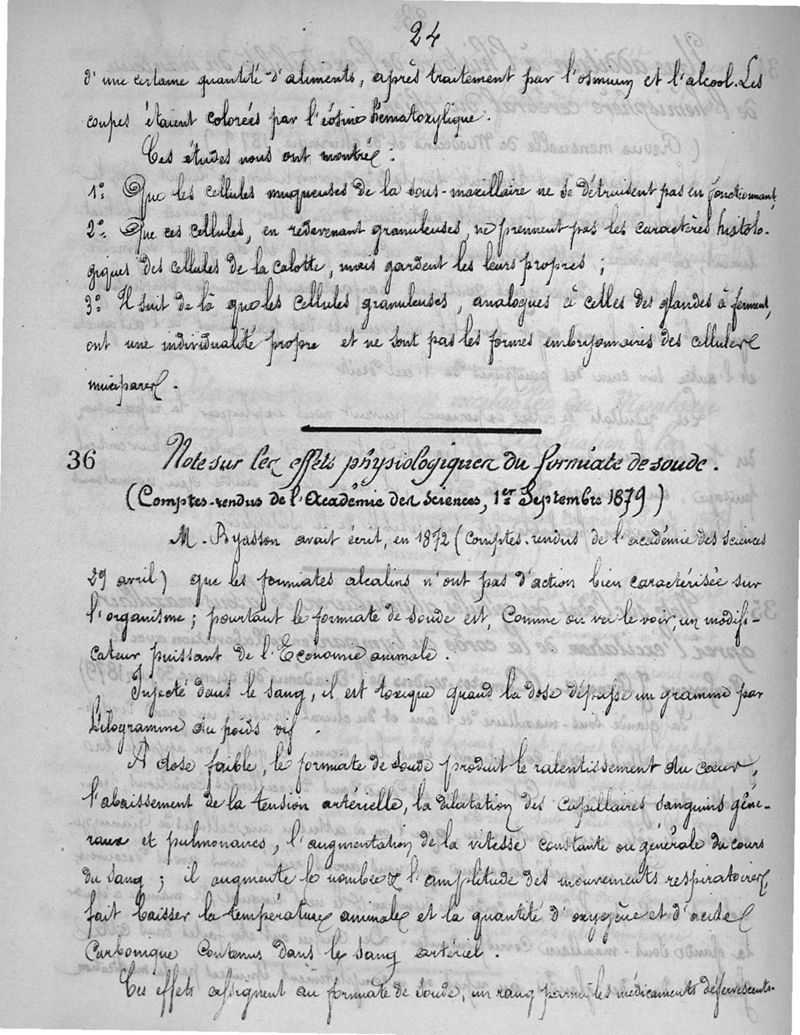 24
d'une certaine quantité d'aliments, après traitement par l'osmium et l'alcool. Les
coupes étaient colorées par l'éosine hématoxylique.
Ces études nous ont montré :
1º. Que les cellules muqueuses de la sous-maxillaire ne se détruisent pas en fonctionnant,
2º. Que ces cellules, en redevenant granuleuses, ne prennent pas les caractères histolo-
giques des cellules de la calotte, mais gardent les leurs propres ;
3º. Il suit de là que les cellules granuleuses, analogues à celles des glandes à ferment,
ont une individualité propre et ne sont pas les formes embryonnaires des cellules
mucipares.
36 Note sur les effets physiologiques du formiate de soude.
(Comptes-rendus de l'Académie des Sciences, 1er Septembre 1879)
M. Byasson avait écrit, en 1872 (Comptes-rendus de l'académie des sciences
29 avril) que les formiates alcalins n'ont pas d'action bien caractérisée sur
l'organisme ; pourtant le formiate de soude est, comme on va le voir, un modifi-
cateur puissant de l'Economie animale.
Injecté dans le sang, il est toxique quand la dose dépasse un gramme par
kilogramme du poids vif.
A dose faible, le formiate de soude produit le ralentissement du cœur,
l'abaissement de la tension artérielle, la dilatation des capillaires sanguins géné-
raux et pulmonaires, l'augmentation de la vitesse constante ou générale du cours
du sang ; il augmente le nombre & l'amplitude des mouvements respiratoires,
fait baisser la température animale et la quantité d'oxygène et d'acide
carbonique contenus dans le sang artériel.
Ces effets assignent au formiate de soude, un rang parmi les médicaments défervescents.